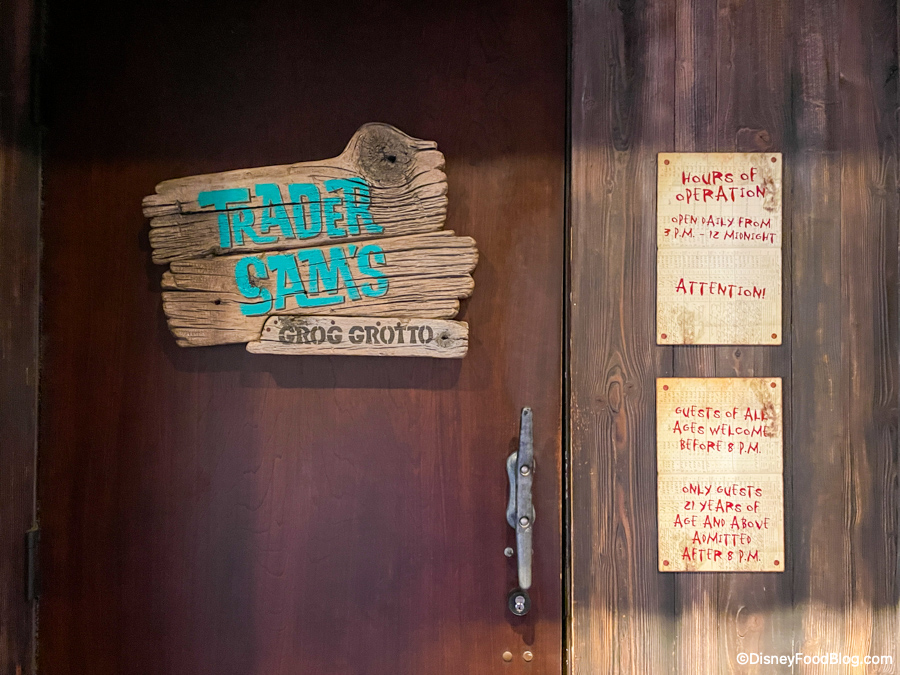 TRADER
SAM'S
GROG GROTTO
HOURS OF
OPERATION
OPEN DAILY FROM
3 P.M. - 12 MIDNIGHT
ATTENTION!
GUESTS OF ALL
AGES WELCOME
BEFORE 8 P.M.
ONLY GUESTS
21 YEARS OF
AGE AND ABOVE
ADMITTED
AFTER 8 P.M.
©DisneyFoodBlog.com